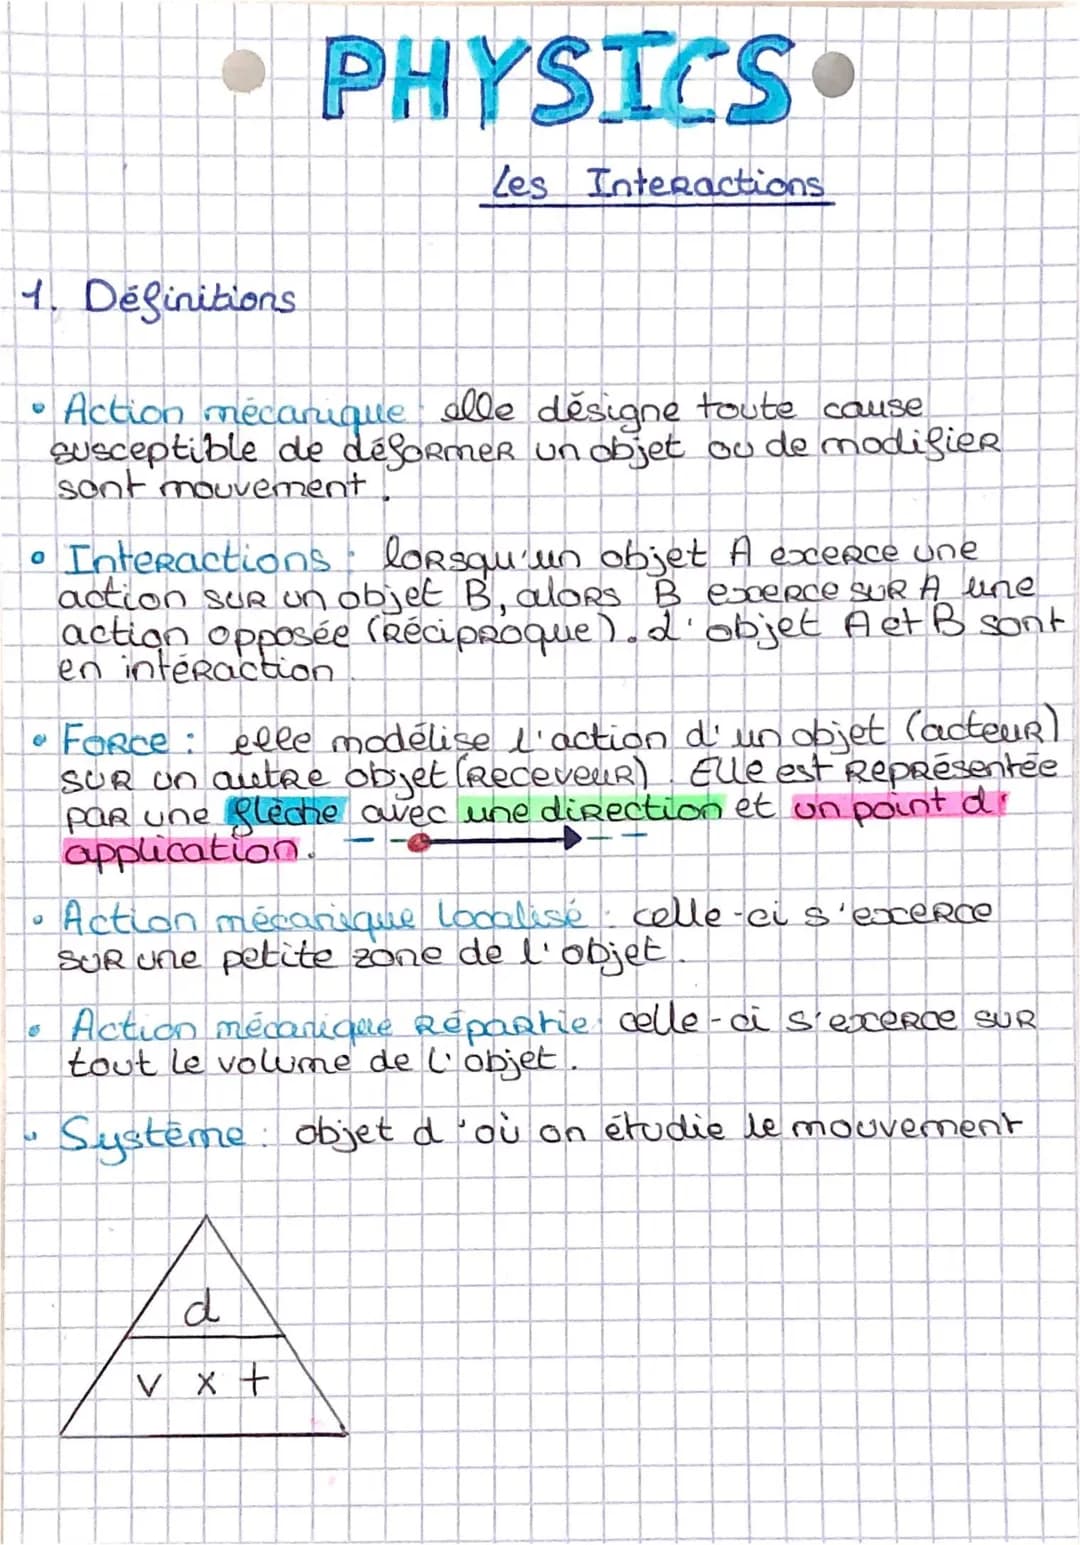 PHYSICS
Les Interactions
1. Définitions
• Action mécanique : elle désigne toute cause
susceptible de déformer un objet ou de modifier
sont mouvement.
• Interactions : lorsqu'un objet A excerce une
action sur un objet B, alors B excerce sur A une
action opposée (réciproque). L'objet A et B sont
en intéraction.
• Force : elle modélise l'action d'un objet (acteur)
sur un autre objet (receveur). Elle est représentée
par une flèche avec une direction et un point d'
application.
• Action mécanique localisé : celle-ci s'excerce
sur une petite zone de l'objet.
• Action mécanique répartie : celle-ci s'excerce sur
tout le volume de l'objet.
• Système : objet d'où on étudie le mouvement
d
v x t